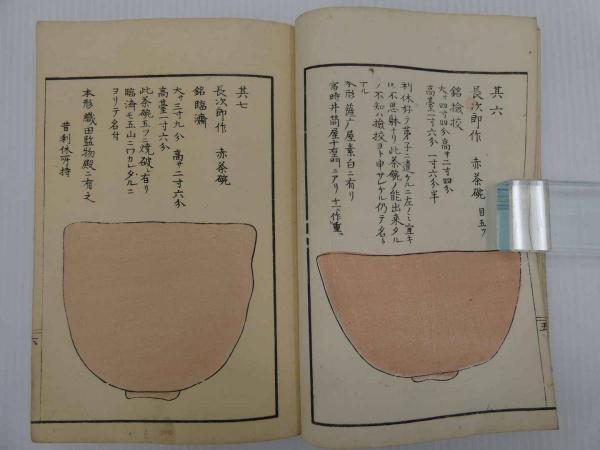 其六
長次郎作 赤茶碗 目五ツ
銘撿挍
大サ四寸四分 高サ二寸四分
高臺一寸六分 一寸六分半
利休持テ弟子ニ遣ケルニ左ノミ宜キ
ハ不思躰ナリ此茶碗ノ能出来タル
ノ不知ハ撿挍ヨト申サレケル仍テ名ト
アル
本形薩广屋素白ニ有リ
當時井筒屋十右ヱ門ニアリ
其七
長次郎作 赤茶碗
銘臨濟
大サ三寸九分 高サ二寸六分
高臺一寸六分
此茶碗五ツニ焼破レ有リ
臨濟モ五山ニワカレタルニ
ヨリテ名付
本形織田監物殿ニ有之
昔利休所持
五
六